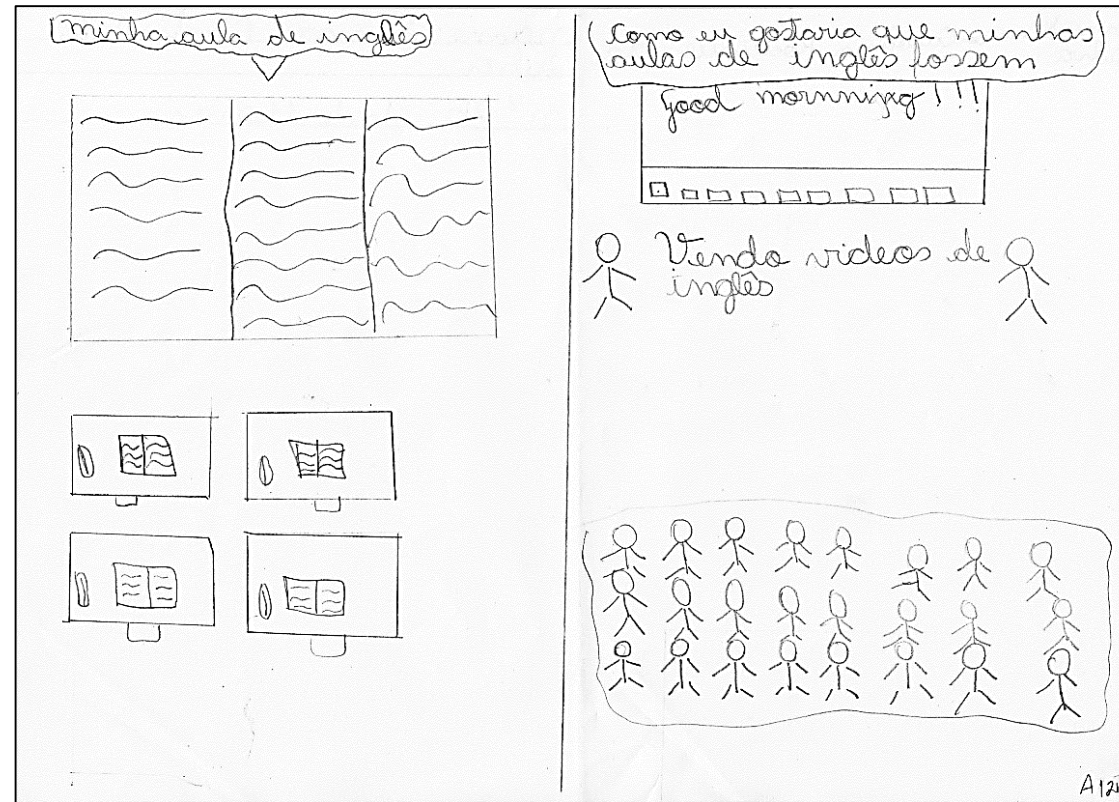 minha aula de inglês
Como eu gostaria que minhas
aulas de inglês fossem
good mornnijxg!!!
Vendo videos de
inglês